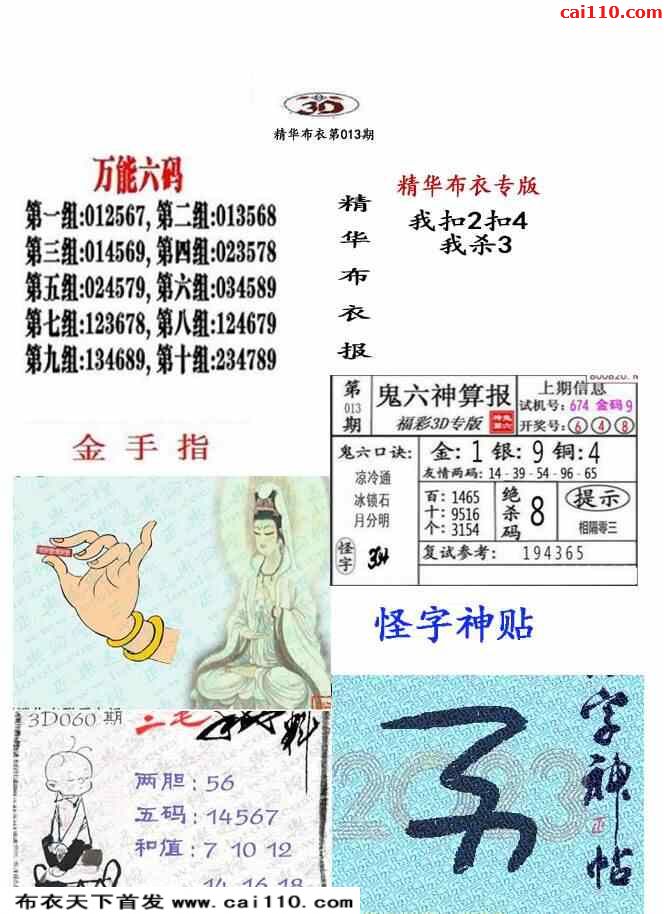 cai110.com
3D
精华布衣第013期
万能六码
第一组:012567,第二组:013568
第三组:014569,第四组:023578
第五组:024579,第六组:034589
第七组:123678,第八组:124679
第九组:134689,第十组:234789
精华布衣报
精华布衣专版
我扣2扣4
我杀3
金手指
第013期
鬼六神算报
福彩3D专版
上期信息
试机号:674 金码9
开奖号:648
鬼六口诀:
凉冷通
冰锁石
月分明
怪字
金:1 银:9 铜:4
友情两码:14-39-54-96-65
百:1465
十:9516
个:3154
绝杀码
8
提示
相隔零三
复试参考: 194365
怪字神贴
3D060期
两胆:56
五码:14567
和值:7 10 12
14 16 18
字神帖
2023
布衣天下首发 www.cai110.com